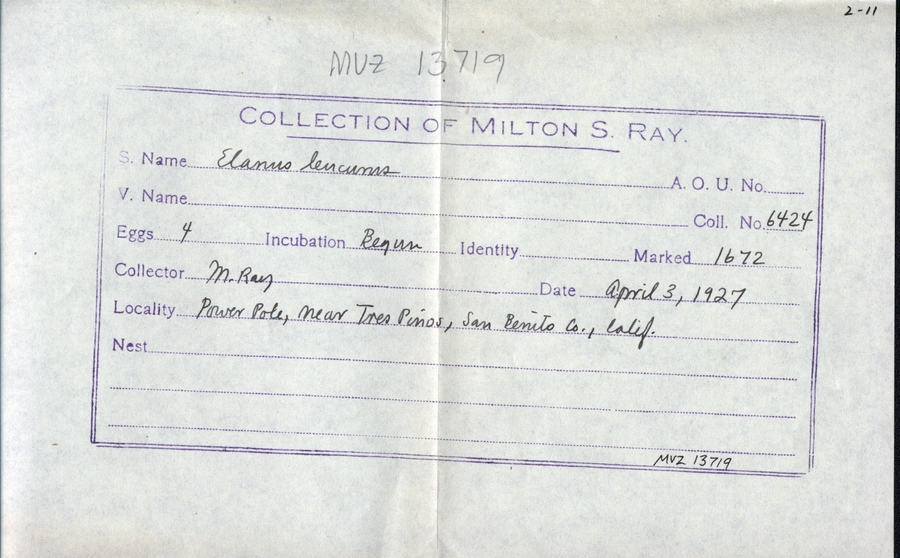 2-11
MVZ 13719
COLLECTION OF MILTON S. RAY.
S. Name Elanus leucurus A. O. U. No.
V. Name Coll. No. 6424
Eggs 4 Incubation Begun Identity Marked 1672
Collector M. Ray Date April 3, 1927
Locality Power Pole, near Tres Pinos, San Benito Co., Calif.
Nest
MVZ 13719